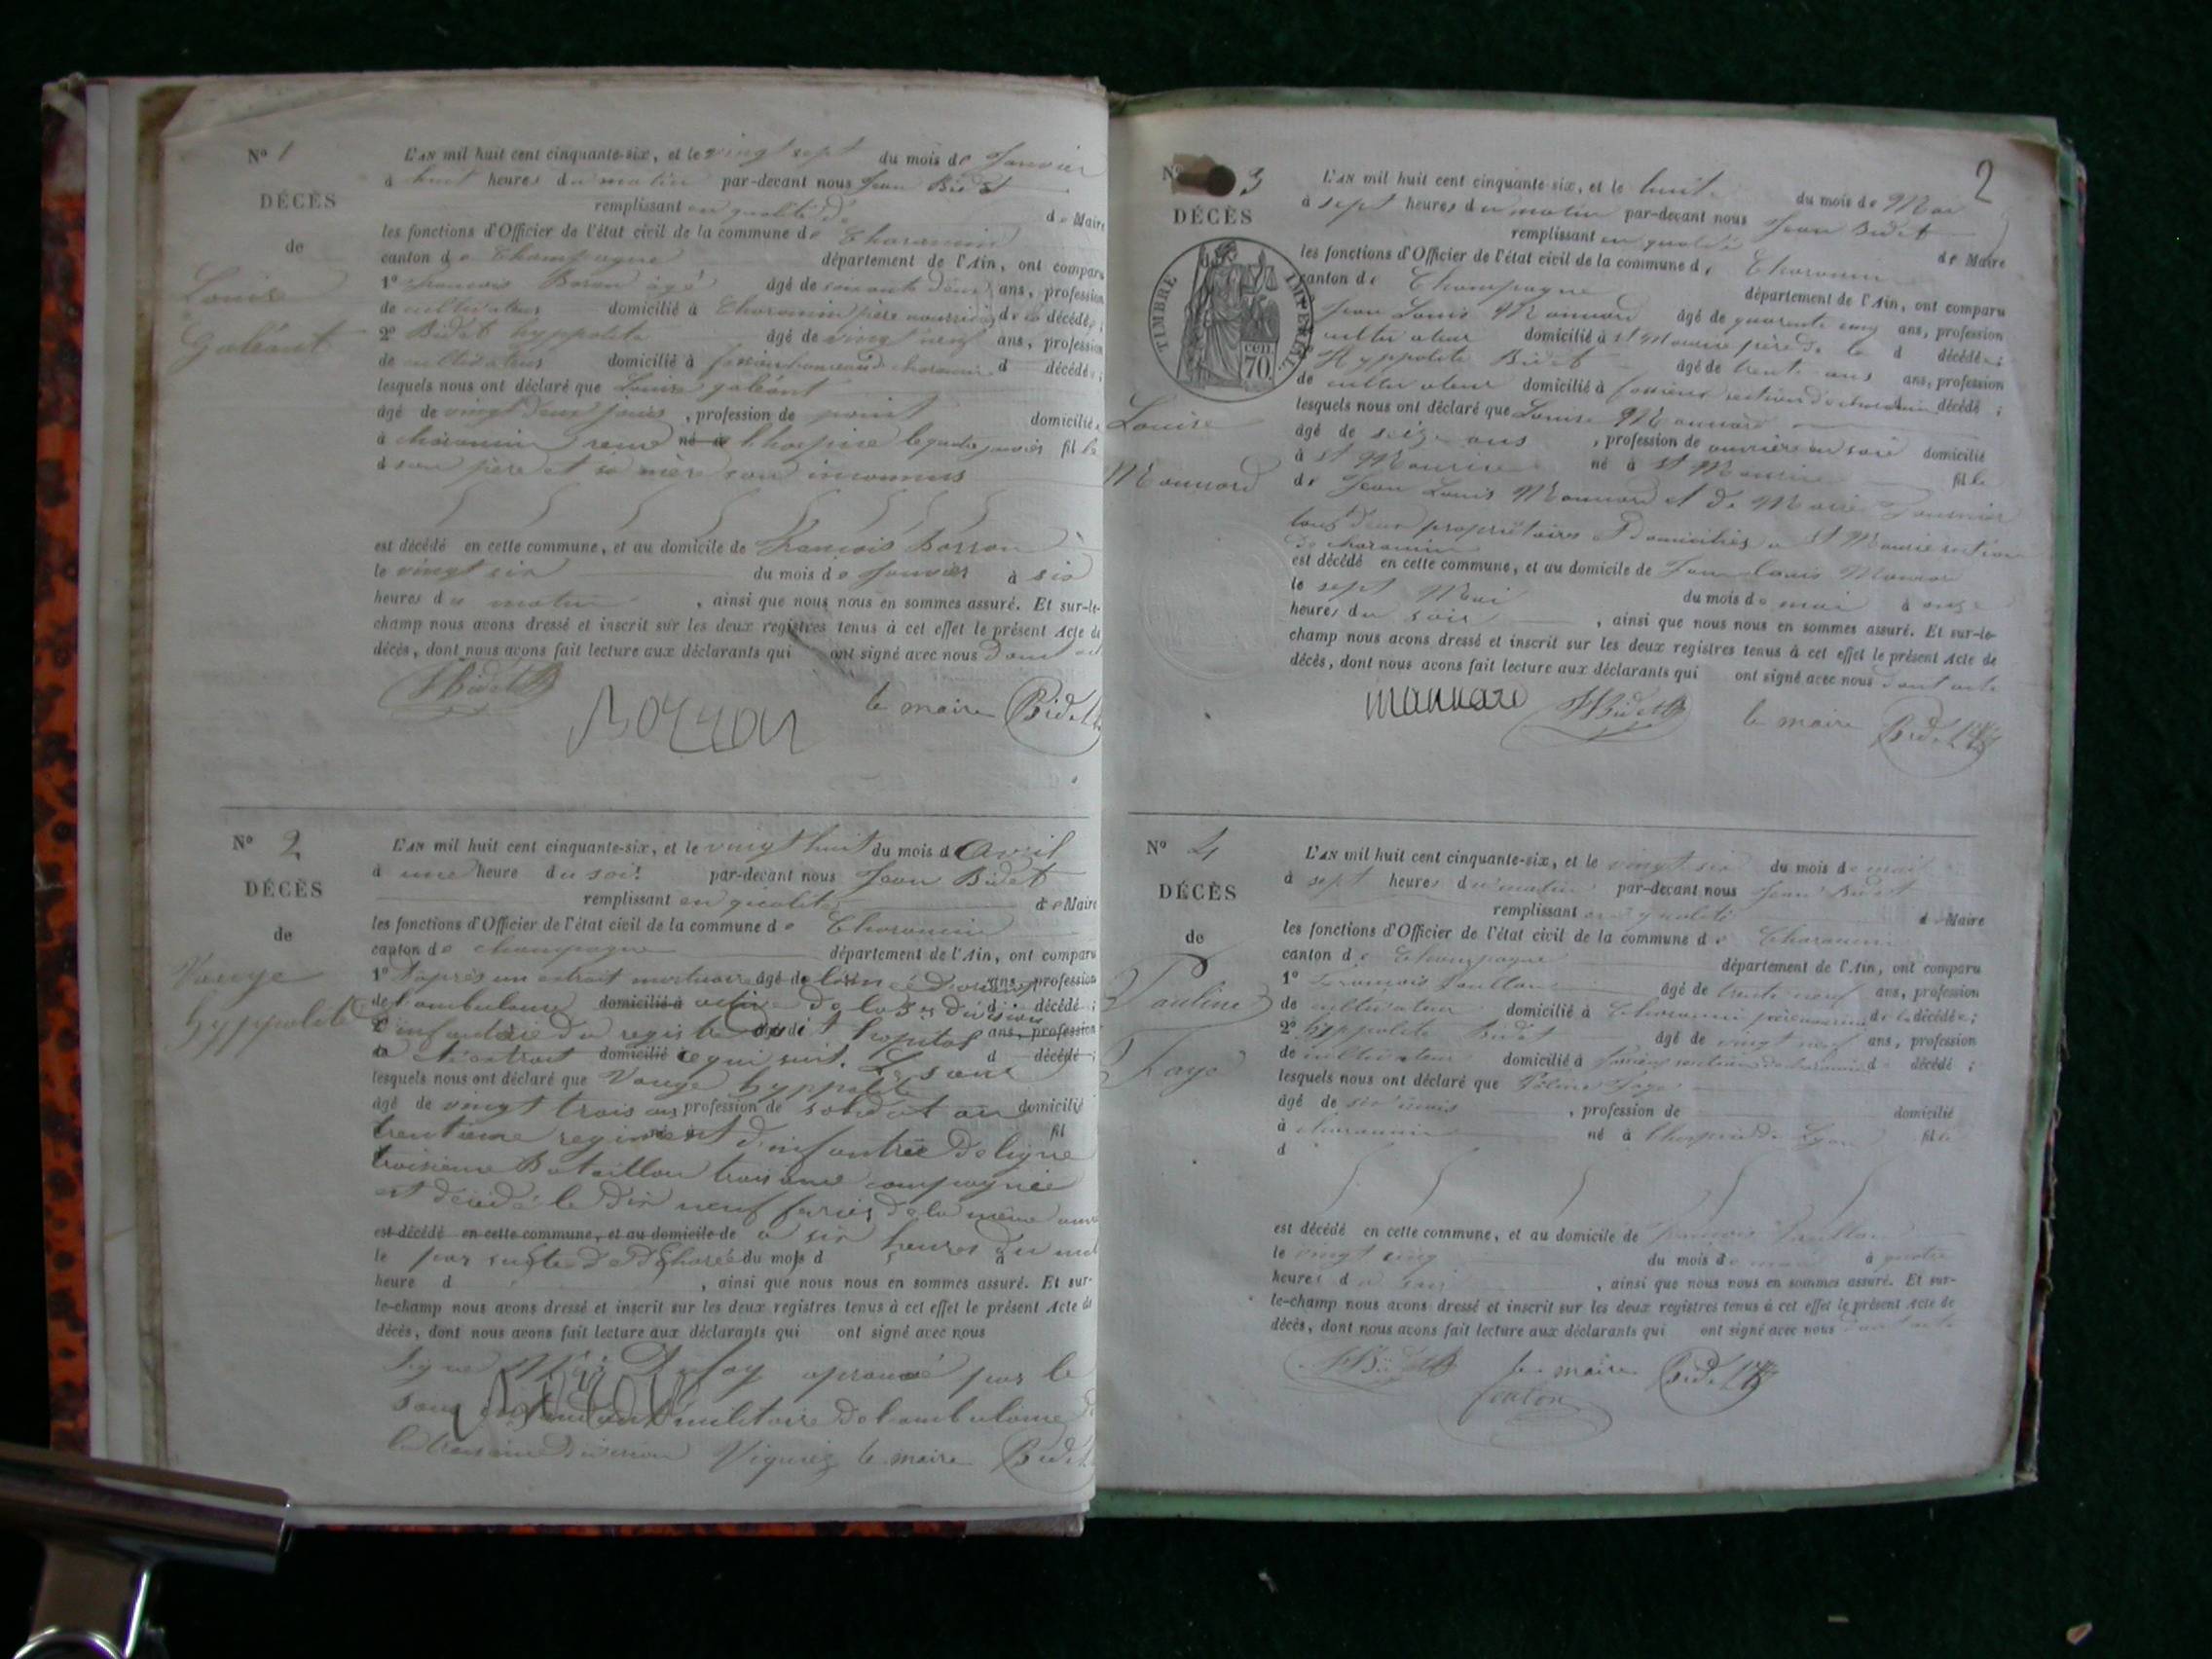 Nº 1
DÉCÈS
de
Louise
Galéant
L'AN mil huit cent cinquante-six, et le vingt sept du mois de Janvier
à huit heures du matin par-devant nous Jean Bidet
remplissant en qualité de Maire
les fonctions d'Officier de l'état civil de la commune de Charancin
canton de Champagne département de l'Ain, ont comparu
1º François âgé de soixante deux ans, profession
de cultivateur domicilié à Charancin père nourricier de la décédée;
2º Bidet hyppolite âgé de vingt neuf ans, profession
de cultivateur domicilié à d décédé;
lesquels nous ont déclaré que Louise galéant
âgé de vingt deux jours, profession de point domicilié
à charancin né à l'hospice le quatre janvier fille
d son père et sa mère sont inconnus
est décédé en cette commune, et au domicile de François Borron
le vingt six du mois de Janvier à six
heures du matin, ainsi que nous nous en sommes assuré. Et sur-le-
champ nous avons dressé et inscrit sur les deux registres tenus à cet effet le présent Acte de
décès, dont nous avons fait lecture aux déclarants qui ont signé avec nous
HBidet
Borron
le maire Bidet
Nº 2
DÉCÈS
de
Vouge
hyppolite
L'AN mil huit cent cinquante-six, et le vingt huit du mois de Avril
à une heure du soir par-devant nous Jean Bidet
remplissant en qualité de Maire
les fonctions d'Officier de l'état civil de la commune de Charancin
canton de champagne département de l'Ain, ont comparu
1º D'après un extrait mortuaire âgé de ans, profession
de l'ambulance domicilié à active de la 3e division d décédé;
2º d'infanterie du registre dudit hopital ans, profession
de domicilié ce qui suit. Le sous d décédé;
lesquels nous ont déclaré que Vouge hyppolite
âgé de vingt trois ans profession de soldat au domicilié
trentième regiment d'infantrie de ligne fil
troisième Bataillon troisième compagnie
est décédé le dix neuf de la même
est décédé en cette commune, et au domicile de a six heures du
le par suite de du mois d à
heure d, ainsi que nous nous en sommes assuré. Et sur-
le-champ nous avons dressé et inscrit sur les deux registres tenus à cet effet le présent Acte de
décès, dont nous avons fait lecture aux déclarants qui ont signé avec nous
signé par le
sous militaire de l'ambulance
division le maire Bidet
2
Nº 3
DÉCÈS
TIMBRE IMPÉRIAL
70 cen.
Louise
Monnard
L'AN mil huit cent cinquante-six, et le huit du mois de Mai
à sept heures du matin par-devant nous Jean Bidet
remplissant en qualité de Maire
les fonctions d'Officier de l'état civil de la commune de Charancin
canton de Champagne département de l'Ain, ont comparu
Jean Louis Monnard âgé de quarante cinq ans, profession
cultivateur domicilié à St Maurice père de la d décédée;
Hyppolite Bidet âgé de trente ans ans, profession
de cultivateur domicilié à section de charancin décédé;
lesquels nous ont déclaré que Louise Monnard
âgé de seize ans, profession de ouvrière en soie domicilié
à St Maurice né à St Maurice fille
de Jean Louis Monnard et de Marie Fournier
tous deux propriétaires domiciliés a St Maurice section
de charancin
est décédé en cette commune, et au domicile de Jean louis Monnard
le sept Mai du mois de mai à onze
heures du soir, ainsi que nous nous en sommes assuré. Et sur-le-
champ nous avons dressé et inscrit sur les deux registres tenus à cet effet le présent Acte de
décès, dont nous avons fait lecture aux déclarants qui ont signé avec nous dont acte
monnard HBidet le maire Bidet
Nº 4
DÉCÈS
de
Pauline
Faye
L'AN mil huit cent cinquante-six, et le vingt six du mois de mai
à sept heures du matin par-devant nous Jean Bidet
remplissant en qualité de Maire
les fonctions d'Officier de l'état civil de la commune de Charancin
canton de Champagne département de l'Ain, ont comparu
1º François âgé de trente neuf ans, profession
de cultivateur domicilié à Charancin père nourricier de la décédée;
2º hyppolite Bidet âgé de vingt neuf ans, profession
de cultivateur domicilié à section de charancin d décédé;
lesquels nous ont déclaré que
âgé de six mois, profession de domicilié
à charancin né à l'hospice de Lyon fille
d
est décédé en cette commune, et au domicile de François
le vingt cinq du mois de mai à quatre
heures du, ainsi que nous nous en sommes assuré. Et sur-
le-champ nous avons dressé et inscrit sur les deux registres tenus à cet effet le présent Acte de
décès, dont nous avons fait lecture aux déclarants qui ont signé avec nous dont acte
HBidet le maire Bidet